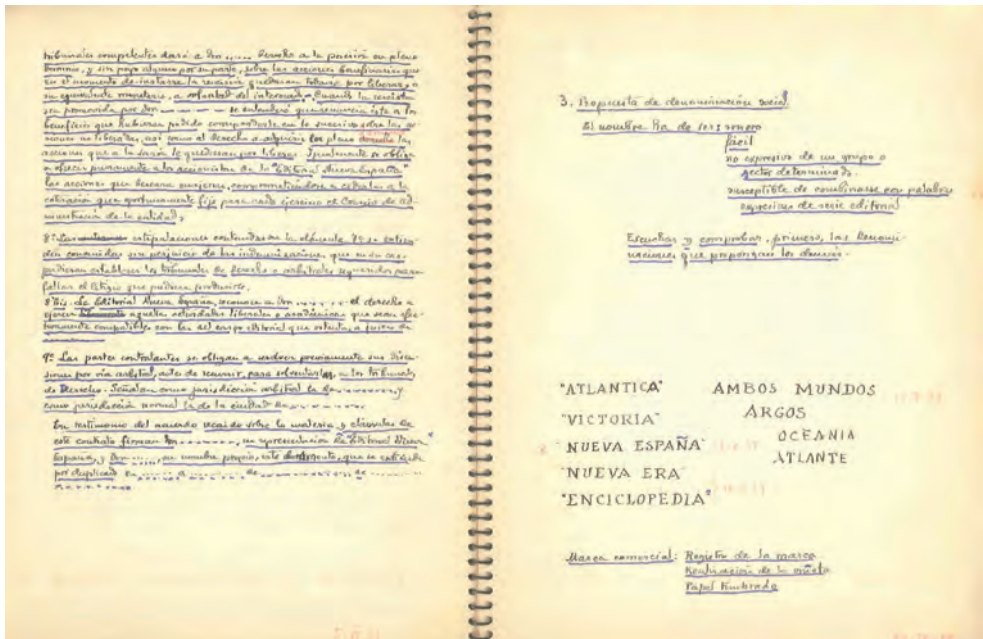 tribunales competentes dará a Don ...... derecho a la posesión en pleno
dominio, y sin pago alguno por su parte, sobre las acciones beneficiarias que
en el momento de instarse la rescisión quedaran todavía por liberar, o
su equivalente monetario, a voluntad del interesado. Cuando la rescisión
sea promovida por Don — — — — se entenderá que renuncia éste a los
beneficios que hubieran podido corresponderle en lo sucesivo sobre las ac-
ciones no liberadas, así como al derecho a adquirir en plano las
acciones que a la sazón le quedaran por liberar. Igualmente se obliga
a ofrecer previamente a los accionistas de la "Editorial Nueva España"
las acciones que deseara enajenar, comprometiéndose a cederlas a la
cotización que oportunamente fije para cada ejercicio el Consejo de Ad-
ministración de la entidad.
8ª Las estipulaciones contenidas en la cláusula 7ª se entien-
den convenidas sin perjuicio de las indemnizaciones que en su caso
pudieran establecer los tribunales de derecho o arbitrales requeridos para
fallar el litigio que pudiera producirse.
8ª bis. La Editorial Nueva España, reconoce a Don ........ el derecho a
ejercer aquellas actividades liberales o académicas que sean efec-
tivamente compatibles con las del cargo editorial que ostenta, a juicio de
9ª Las partes contratantes se obligan a resolver previamente sus discu-
siones por vía arbitral, antes de recurrir, para solventarlas, a los tribunales
de Derecho. Señalan como jurisdicción arbitral la de ........... y
como jurisdicción normal la de la ciudad de ..........
En testimonio del acuerdo recaído sobre la materia y cláusulas de
este contrato firman Don ........, en representación de "Editorial Nueva
España", y Don ....., en nombre propio, este documento, que se extiende
por duplicado en ....... a ........ de ............... de ......
3. Propuesta de denominación social
El nombre ha de ser: sonoro
fácil
no expresivo de un grupo o
sector determinado.
susceptible de combinarse con palabra
expresiva de serie editorial
Escuchar y comprobar, primero, las denomi-
naciones que propongan los demás.
"ATLANTICA" AMBOS MUNDOS
"VICTORIA" ARGOS
"NUEVA ESPAÑA" OCEANIA
"NUEVA ERA" ATLANTE
"ENCICLOPEDIA"
Marca comercial: Registro de la marca
Realización de la viñeta
Papel timbrado